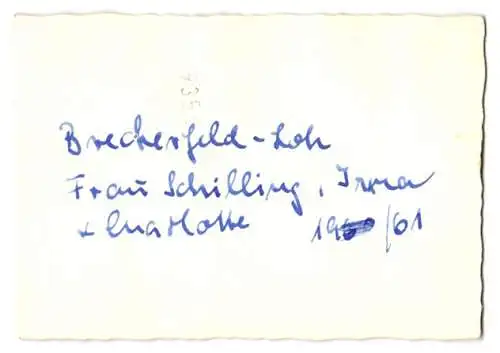 Breckerfeld-Loh
Frau Schilling, Irma
+ Charlotte 1960/61